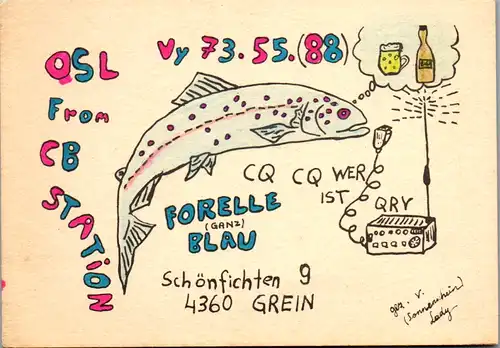 QSL
From
CB
STATiÖN
Vy 73.55.(88)
CQ CQ WER
IST QRV
FORELLE
(GANZ)
BLAU
Schönfichten 9
4360 GREIN
gez. v.
(Sonnenschein)
Lady